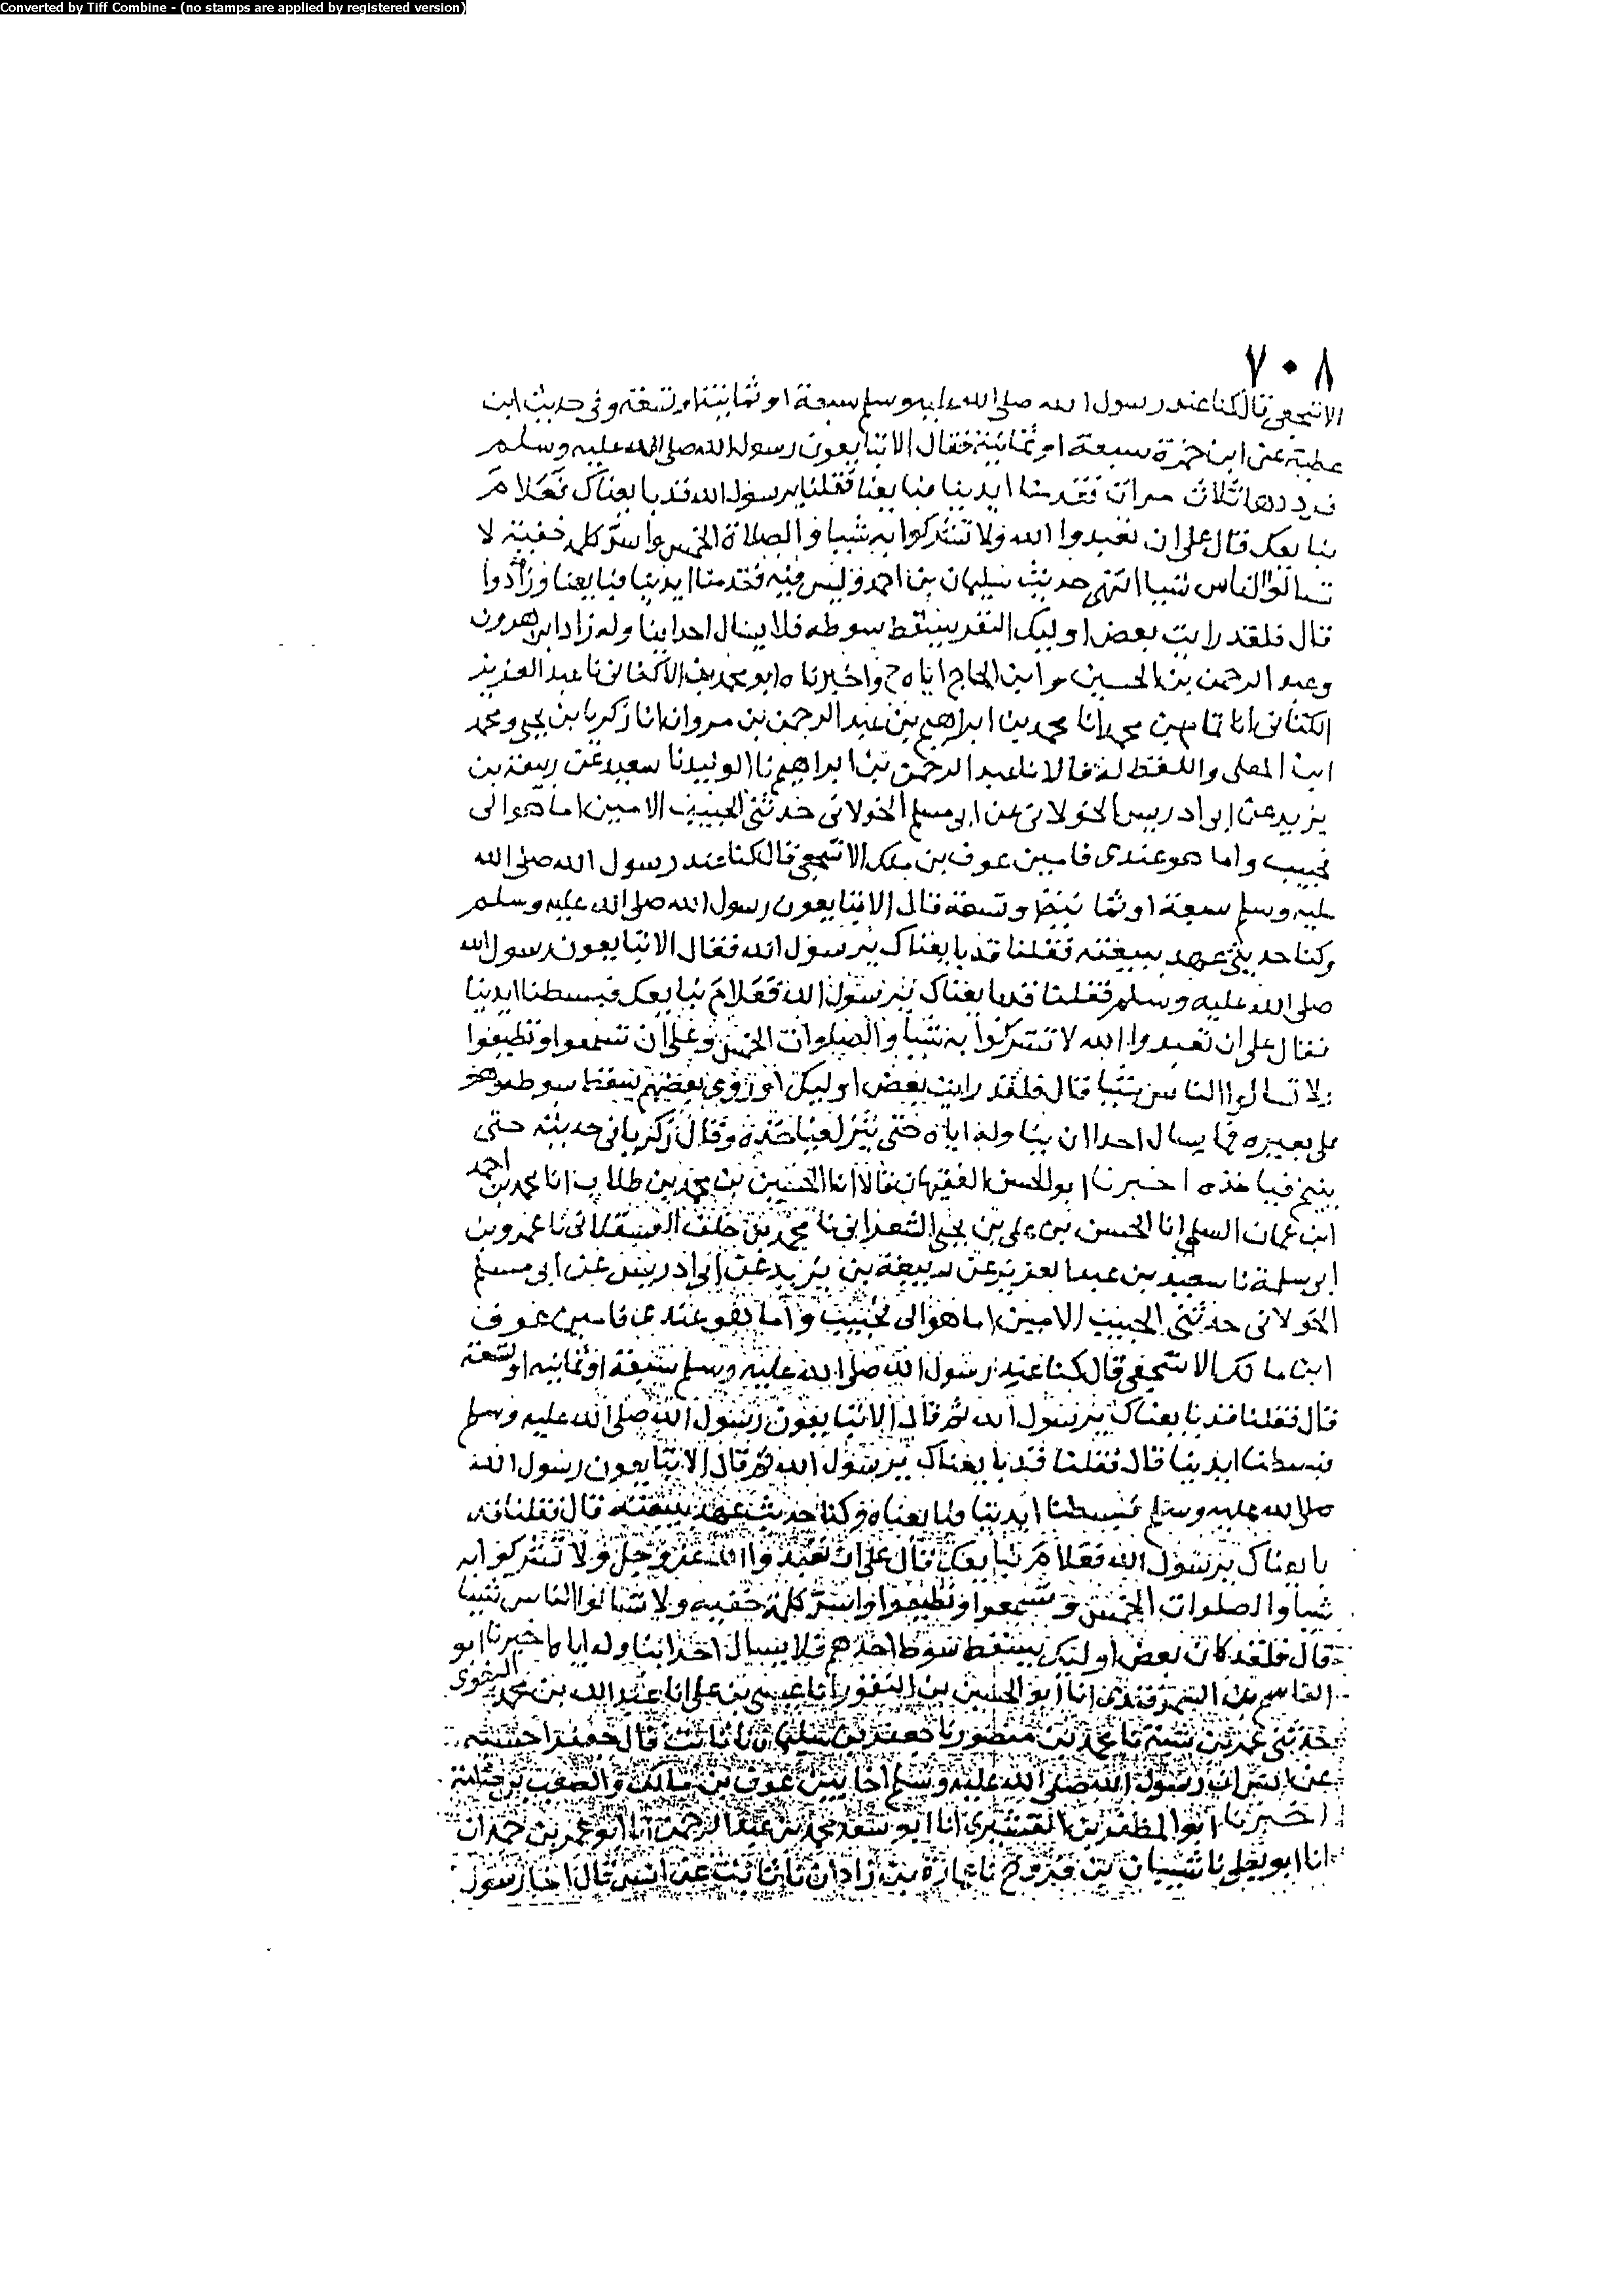 Converted by Tiff Combine - (no stamps are applied by registered version)
٧٠٨
الاشجعي قال كنا عند رسول الله صلى الله عليه وسلم سبعة او ثمانية او تسعة وفي حديث ابن
عطية عن ابن حمزة سبعة او ثمانية فقال الا تبايعون رسول الله صلى الله عليه وسلم
فرددها ثلاث مرات فقدمنا ايدينا فبايعنا فقلنا يرسول الله قد بايعناك فعلام
نبايعك قال على ان تعبدوا الله ولا تشركوا به شيا والصلاة الخمس واسر كلمة خفية لا
تسالوا الناس شيا انتهى حديث سليمان بن احمد وليس فيه فقدمنا ايدينا فبايعنا وزادوا
قال فلقد رايت بعض اوليك النفر يسقط سوطه فلا يسال احدا يناوله زاد ابن هرون
وعبد الرحمن بن الحسين وابن الحاج اياه ح واخبرناه ابو محمد بن الاكفاني نا عبد العزيز
الكتاني انا تمام بن محمد انا محمد بن ابراهيم بن عبد الرحمن بن مروان انا زكريا بن يحيى ومحمد
ابن المعلى واللفظ له قالا نا عبد الرحمن بن ابراهيم نا الوليد نا سعيد عن ربيعة بن
يزيد عن ابي ادريس الخولاني عن ابي مسلم الخولاني حدثني الحبيب الامين اما هو الي
فحبيب واما هو عندي فامين عوف بن ملك الاشجعي قال كنا عند رسول الله صلى الله
عليه وسلم سبعة او ثمانية او تسعة قال الا تبايعون رسول الله صلى الله عليه وسلم
وكنا حديثي عهد ببيعته فقلنا قد بايعناك يرسول الله فقال الا تبايعون رسول الله
صلى الله عليه وسلم فقلنا قد بايعناك يرسول الله فعلام نبايعك فبسطنا ايدينا
فقال على ان تعبدوا الله لا تشركوا به شيا والصلوات الخمس وعلى ان تسمعوا وتطيعوا
ولا تسالوا الناس شيا قال فلقد رايت بعض اوليك او روي بعضهم يسقط سوطه وهو
على بعيره فما يسال احدا ان يناوله اياه حتى ينزل فياخذه وقال زكريا في حديثه حتى
ينيخ فياخذه اخبرنا ابو الحسن الفقيهان قالا انا الحسين بن محمد بن طلاب انا محمد بن احمد
ابن عثمان السلمي انا الحسن بن علي بن يحيى الشعراني نا محمد بن خلف العسقلاني نا عمرو بن
ابي سلمة نا سعيد بن عبد العزيز عن ربيعة بن يزيد عن ابي ادريس عن ابي مسلم
الخولاني حدثني الحبيب الامين اما هو الي فحبيب واما هو عندي فامين عوف
ابن مالك الاشجعي قال كنا عند رسول الله صلى الله عليه وسلم سبعة او ثمانيه او تسعة
قال فقلنا قد بايعناك يرسول الله ثم قال الا تبايعون رسول الله صلى الله عليه وسلم
فبسطنا ايدينا قال فقلنا قد بايعناك يرسول الله ثم قال الا تبايعون رسول الله
صلى الله عليه وسلم فبسطنا ايدينا فبايعناه وكنا حديث عهد ببيعته قال فقلنا قد
بايعناك يرسول الله فعلام نبايعك قال على ان تعبدوا الله عز وجل ولا تشركوا به
شيا والصلوات الخمس وتسمعوا وتطيعوا واسر كلمة خفيه ولا تسالوا الناس شيا
قال فلقد كان بعض اوليك يسقط سوط احدهم فلا يسال احدا يناوله اياه اخبرنا ابو
القاسم بن السمرقندي انا ابو الحسين بن النقور انا عيسى بن علي انا عبد الله بن محمد البغوي
حدثني عمر بن شبة نا محمد بن منصور نا جعفر بن سليمان نا ثابت قال جعفر احسبه
عن انس ان رسول الله صلى الله عليه وسلم اخا بين عوف بن مالك والصعب بن جثامة
اخبرنا ابو المظفر بن القشيري انا ابو سعد محمد بن عبد الرحمن انا ابو عمرو بن حمدان
انا ابو يعلى نا شيبان بن فروخ نا عمارة بن زاذان نا ثابت عن انس قال اخا رسول